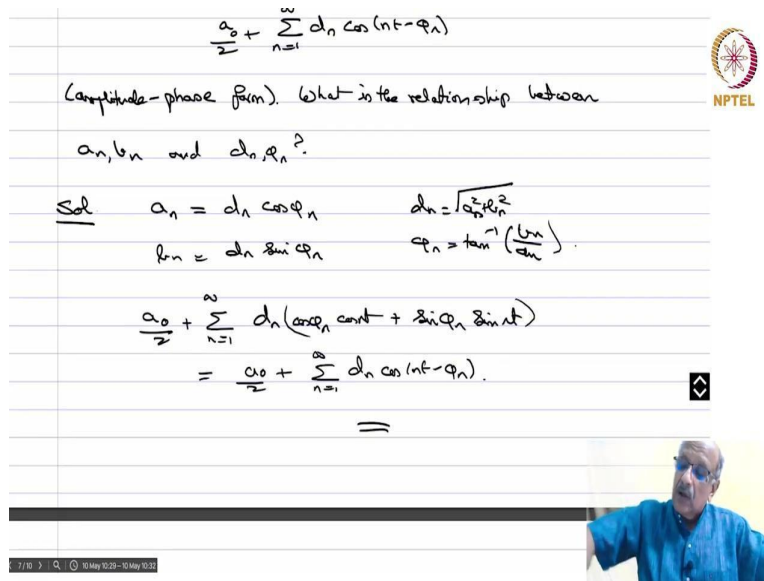 a₀/2 + ∞ Σ n=1 dₙ cos(nt-φₙ)
NPTEL
(amplitude-phase form). What is the relationship between
aₙ, bₙ and dₙ, φₙ?
Sol aₙ = dₙ cosφₙ dₙ = √(aₙ²+bₙ²)
bₙ = dₙ sinφₙ φₙ = tan⁻¹(bₙ/aₙ).
a₀/2 + ∞ Σ n=1 dₙ(cosφₙ cosnt + sinφₙ sin nt)
= a₀/2 + ∞ Σ n=1 dₙ cos(nt-φₙ).
7/10 10 May 10:29 - 10 May 10:32